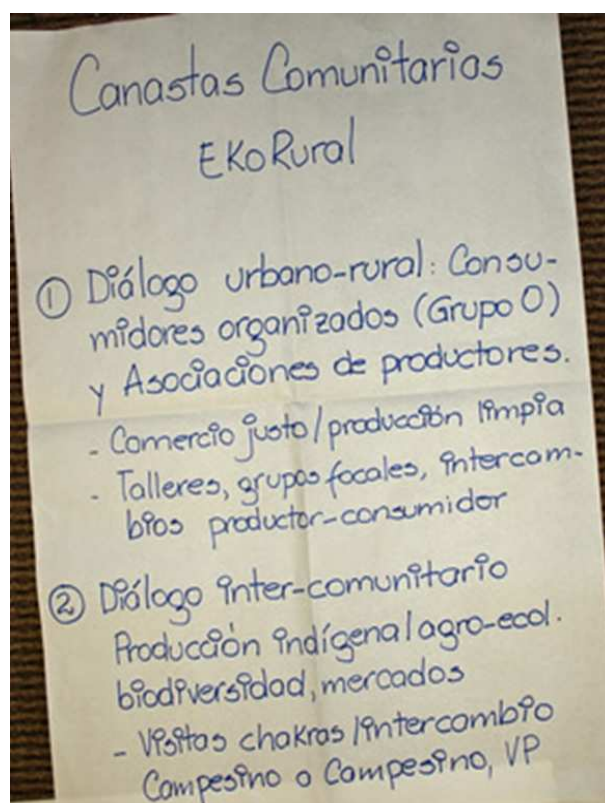 Canastas Comunitarias
EkoRural
① Diálogo urbano-rural: Consu-
midores organizados (Grupo O)
y Asociaciones de productores.
- Comercio justo/producción limpia
- Talleres, grupos focales, intercam-
bios productor-consumidor
② Diálogo inter-comunitario
Producción indígena/agro-ecol.
biodiversidad, mercados
- Visitas chakras/intercambio
Campesino a Campesino, VP